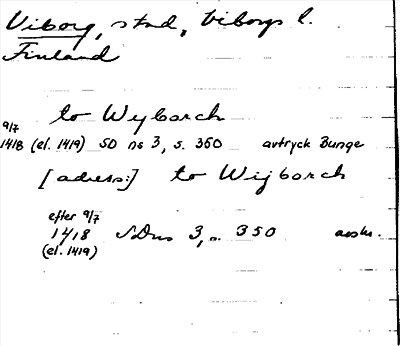 Viborg, stad, Viborgs l.
Finland
to Wyborch
9/7
1418 (el. 1419) SD ns 3, s. 350 avtryck Bunge
[adress:] to Wijborch
efter 9/7
1418 SDns 3, s. 350 avskr.
(el. 1419)